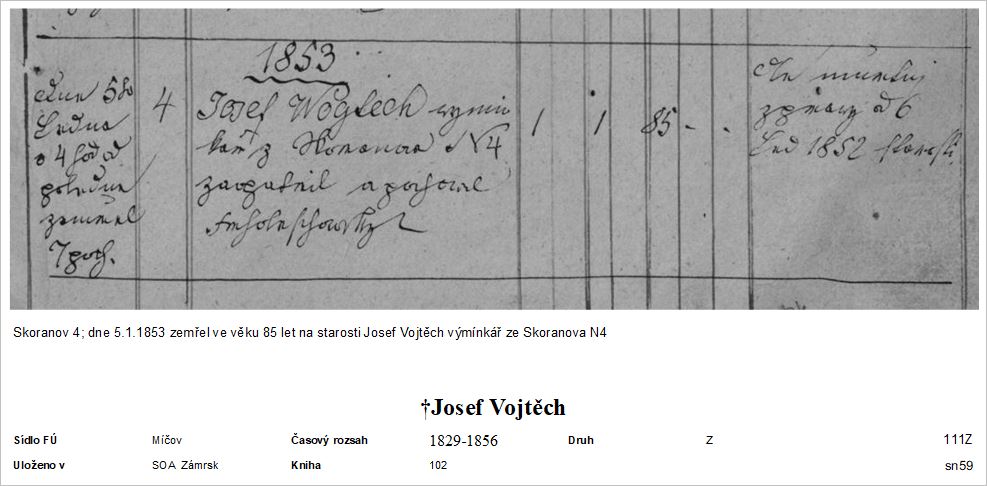 1853
dne 5ho
Ledna
o 4 hod od
poledne
zemřel
7 poch.
4
Josef Wogtech wymin
kař z Skoranova N4
zaopatřil a pochoval
1 1 85 - -
zprawy od 6
Led 1852 starosti
Skoranov 4; dne 5.1.1853 zemřel ve věku 85 let na starosti Josef Vojtěch výmínkář ze Skoranova N4
†Josef Vojtěch
Sídlo FÚ Míčov Časový rozsah 1829-1856 Druh Z 111Z
Uloženo v SOA Zámrsk Kniha 102 sn59